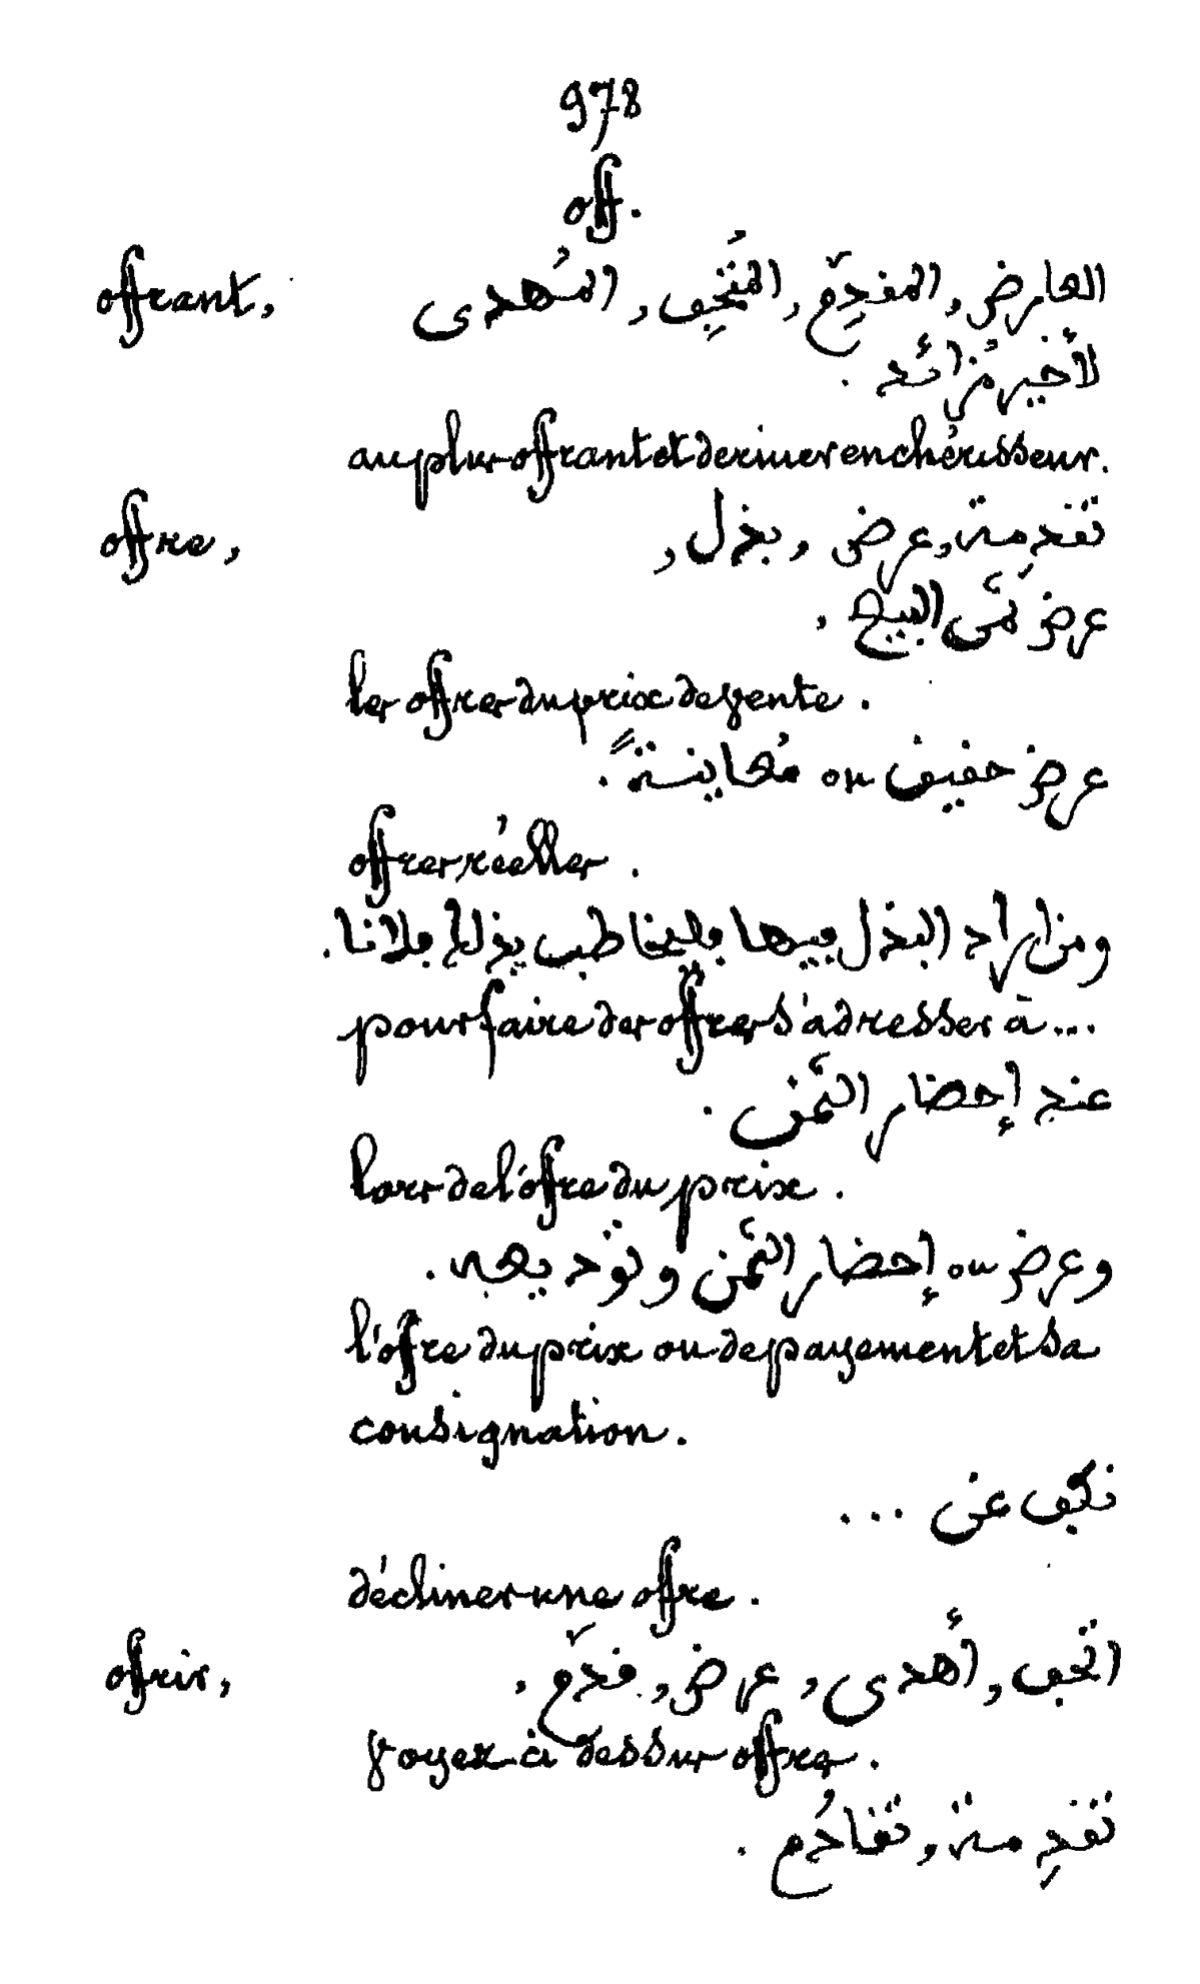 978
off.
offrant, العارض, المقدِّم, المُتْحِف, المُهدى
لأخير مُزائد.
au plus offrant et dernier enchérisseur.
offre, تقدِمة, عرض, بذل,
عرض ثمَن البيع,
les offres du prix de vente.
عرض حقيق ou مُعاينةً.
offres réelles.
ومن اراد البذل فيها فليخاطب بذلك فلانا.
pour faire des offres s'adresser à...
عند إحضار الثمَن.
lors de l'ofre du prix.
وعرض ou إحضار الثمَن وتوديعه.
l'ofre du prix ou de payement et sa
consignation.
نكف عن ...
décliner une offre.
offrir, اتحف, أهدى, عرض, قدّم,
voyez ci dessus offres.
تقدِمة, تقادُم.